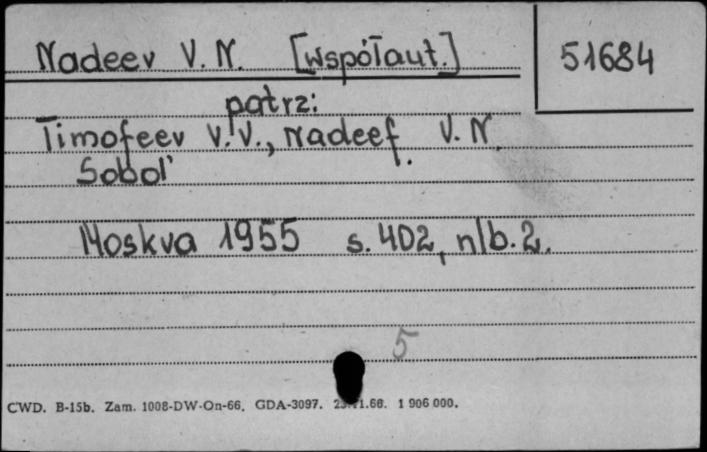 Nadeev V. N. [współaut.]
51684
patrz:
Timofeev V. V., Nadeef V. N.
Sobol'
Moskva 1955 s. 402, nlb. 2.
5
CWD. B-15b. Zam. 1008-DW-On-66. GDA-3097. 1.66. 1 906 000.